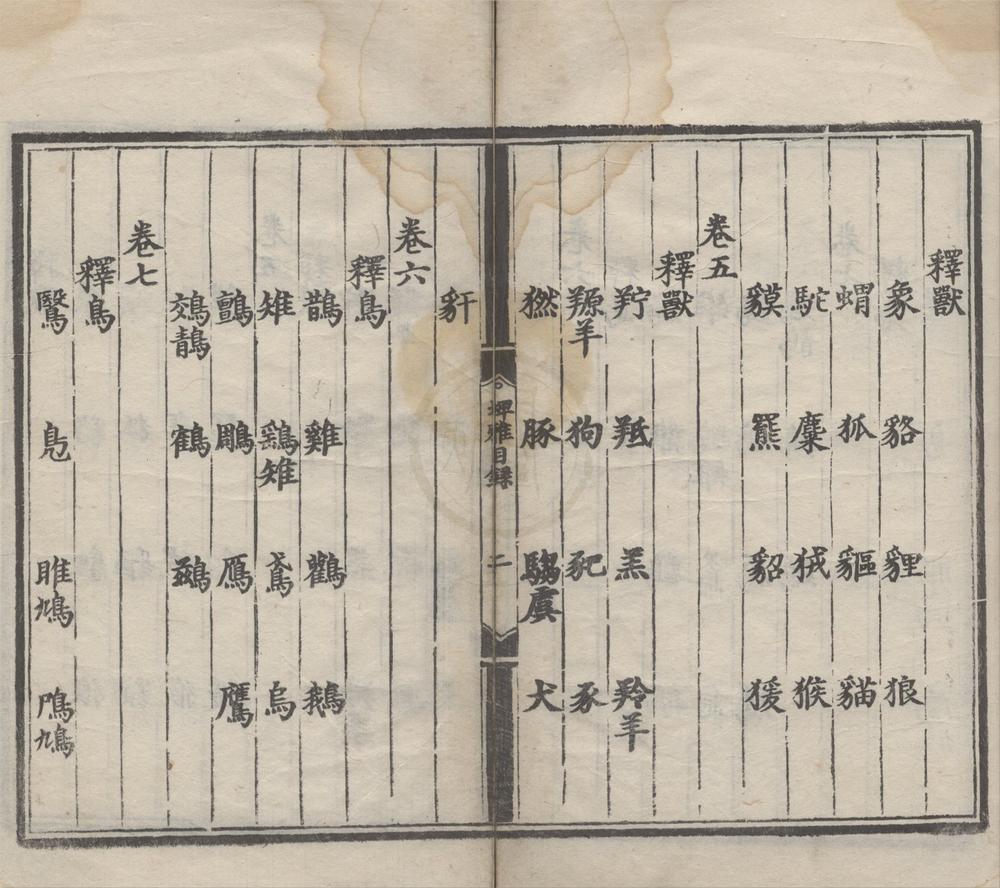 釋獸
象 貉 貍 狼
蝟 狐 貙 貓
駝 麋 狨 猴
貘 羆 貂 猨
卷五
釋獸
羜 羝 羔 羚羊
羱羊 狗 豝 豕
豚 騶虞 犬
埤雅目錄 二
豻
卷六
釋鳥
鵲 雞 鸛 鵝
雉 鷂雉 鳶 烏
鸇 鵰 鴈 鷹
鵁鶄 鶴 鷀
卷七
釋鳥
鷖 鳧 雎鳩 鳲鳩